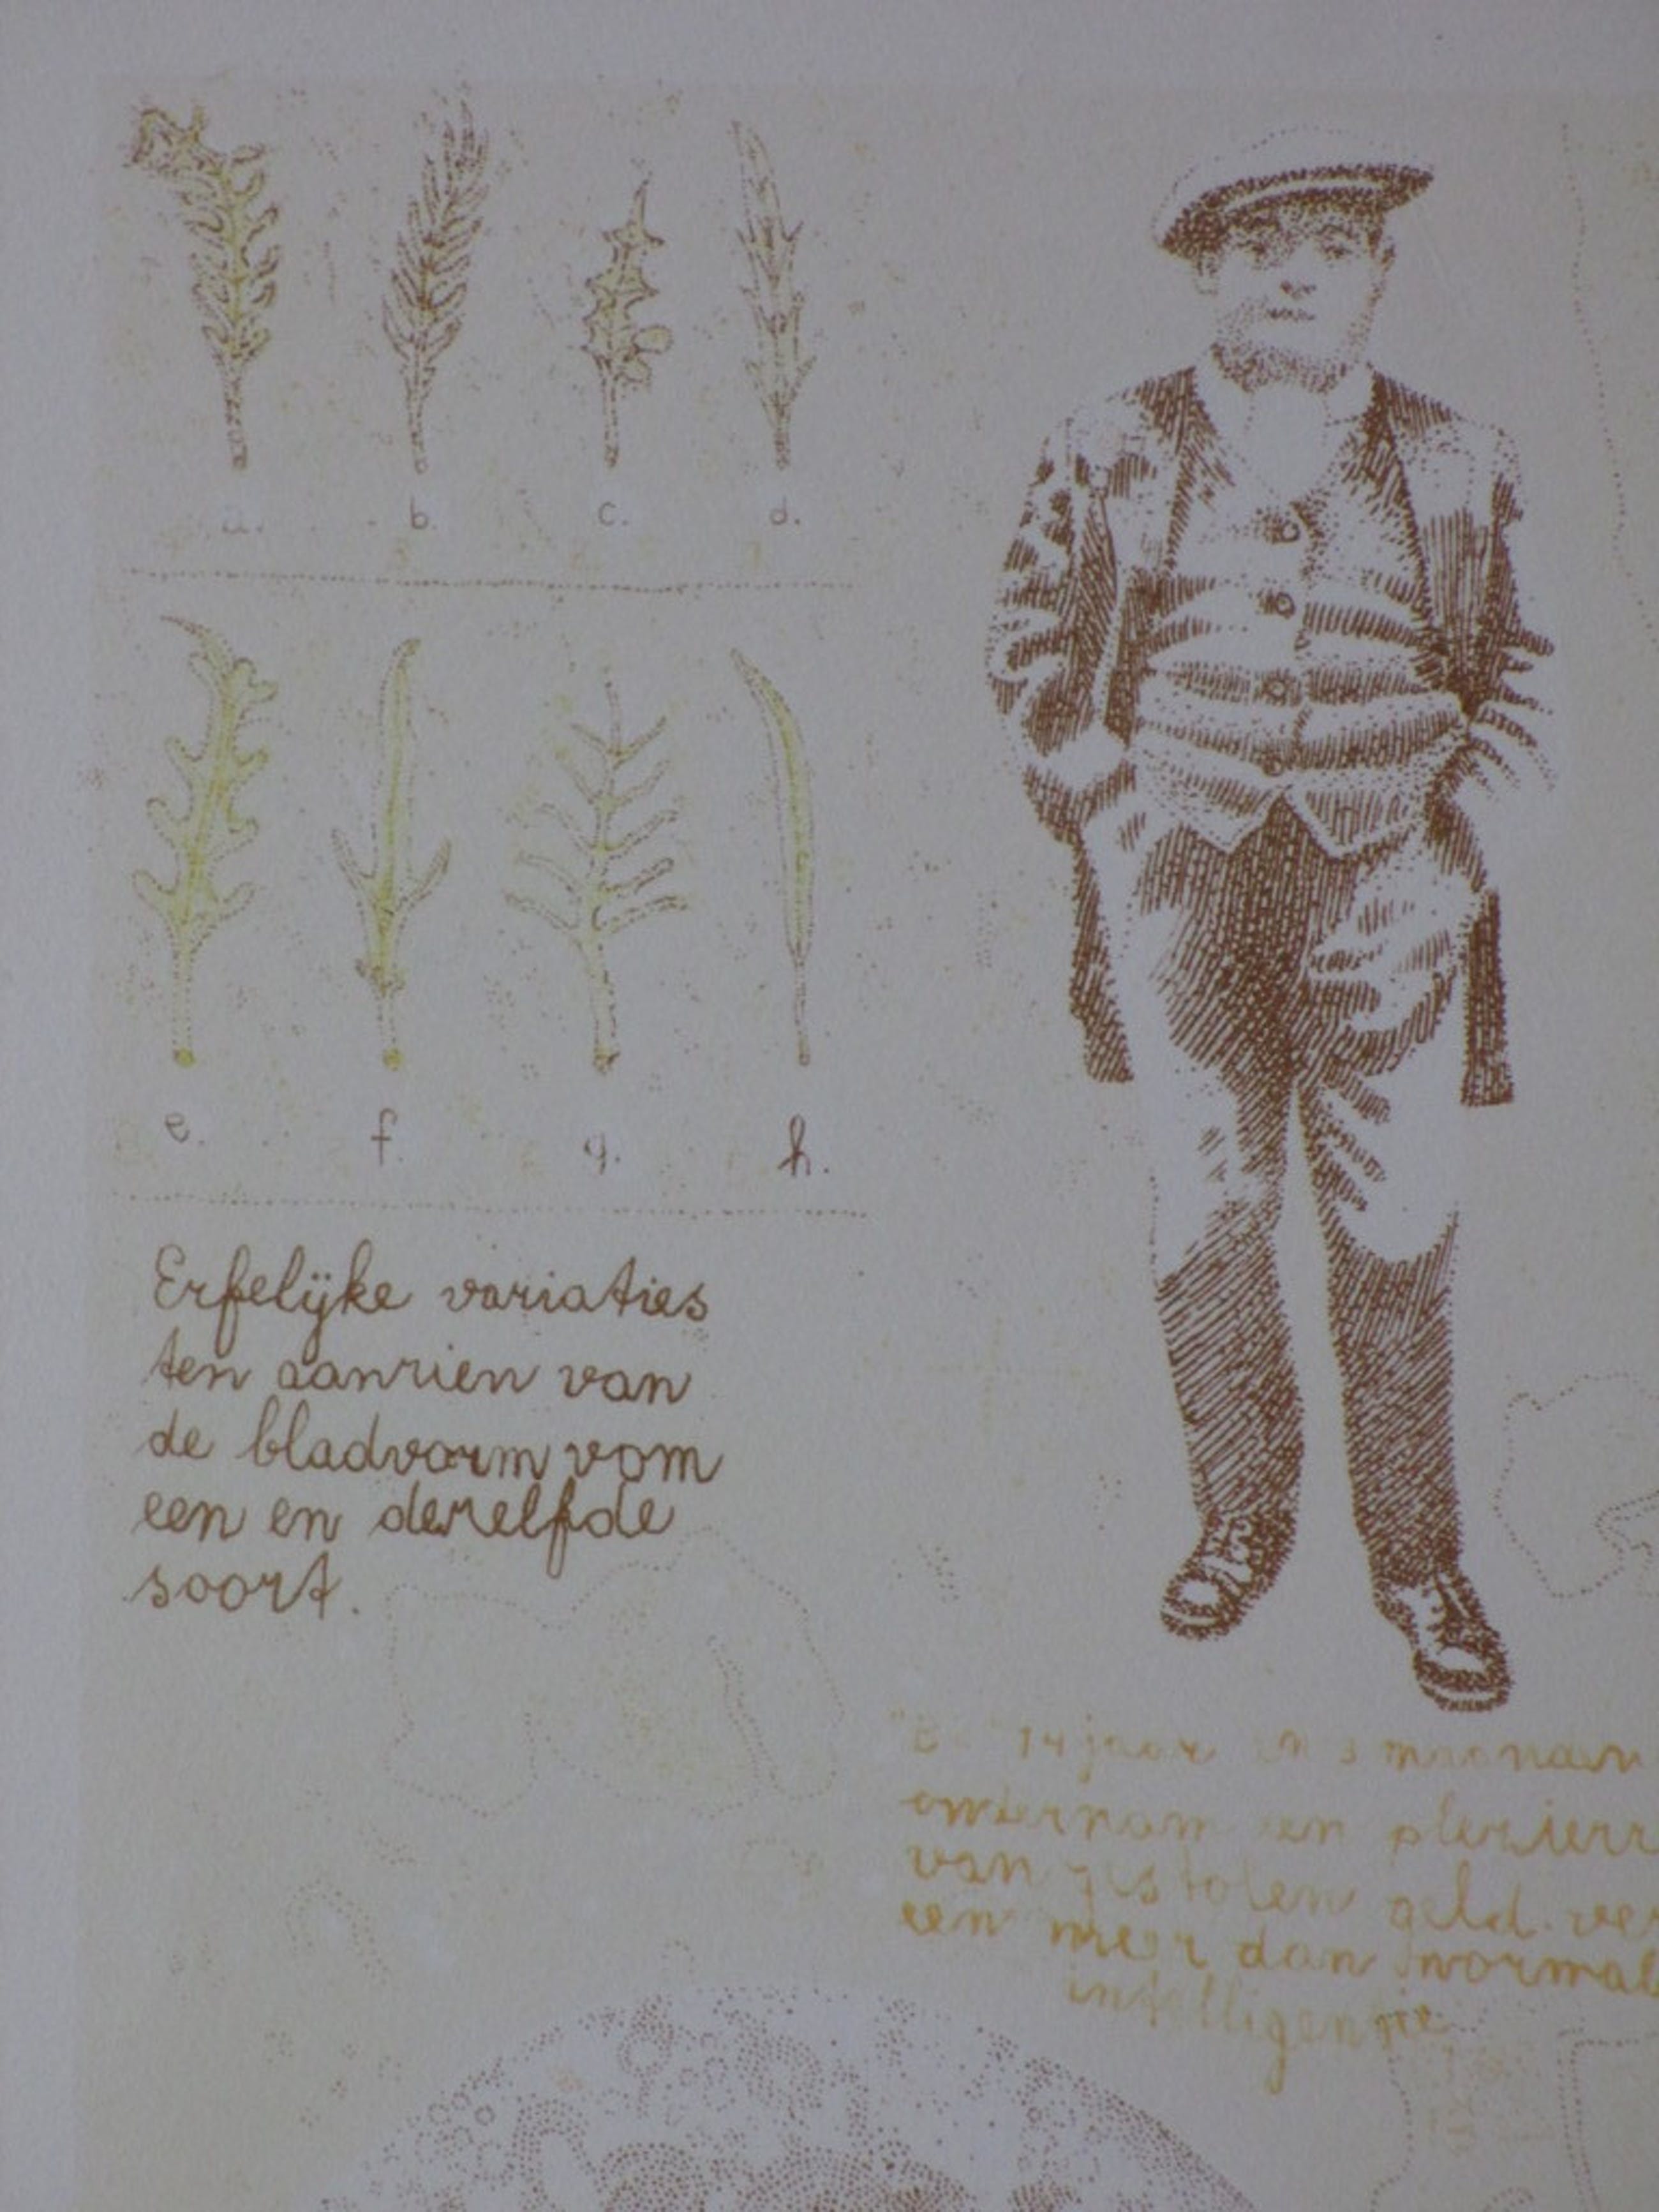 a. b. c. d.
e. f. g. h.
Erfelijke variaties
ten aanzien van
de bladvorm vom
een en dezelfde
soort.
14 jaar en 3 maanden
ondernam een plezierr
van gestolen geld. ver
een meer dan normal
intelligentie